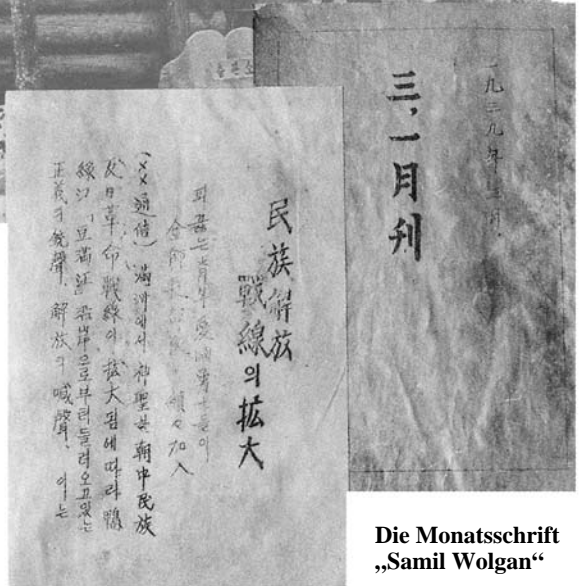 三,一月刊
民族解放
戰線의拡大
피끓는青年愛國勇士들이
加入
(××通信) 滿洲에서 神聖한 朝中民族
反日革命戰線의 拡大됨에따라 鴨
綠江, 豆滿江 沿岸으로부터들려오고있는
正義의銃聲, 解放의喊聲, 이는
Die Monatsschrift
„Samil Wolgan“